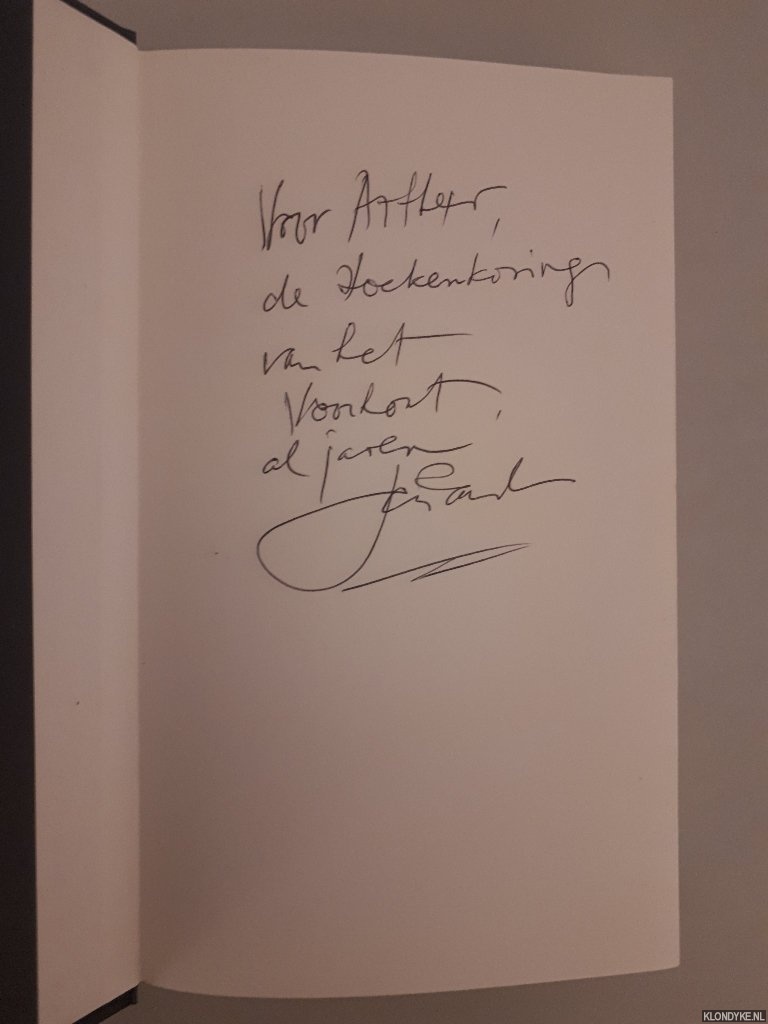 Voor Arthur,
de boekenkoning
van het
Voorhout,
al jaren
KLONDYKE.NL